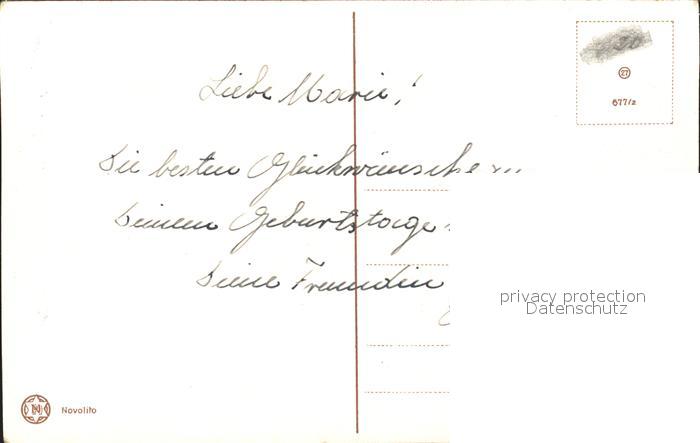 Liebe Marie!
Die besten Glückwünsche
Deinem Geburtstage
Deine Freundin
27
677/2
privacy protection
Datenschutz
N
Novolito